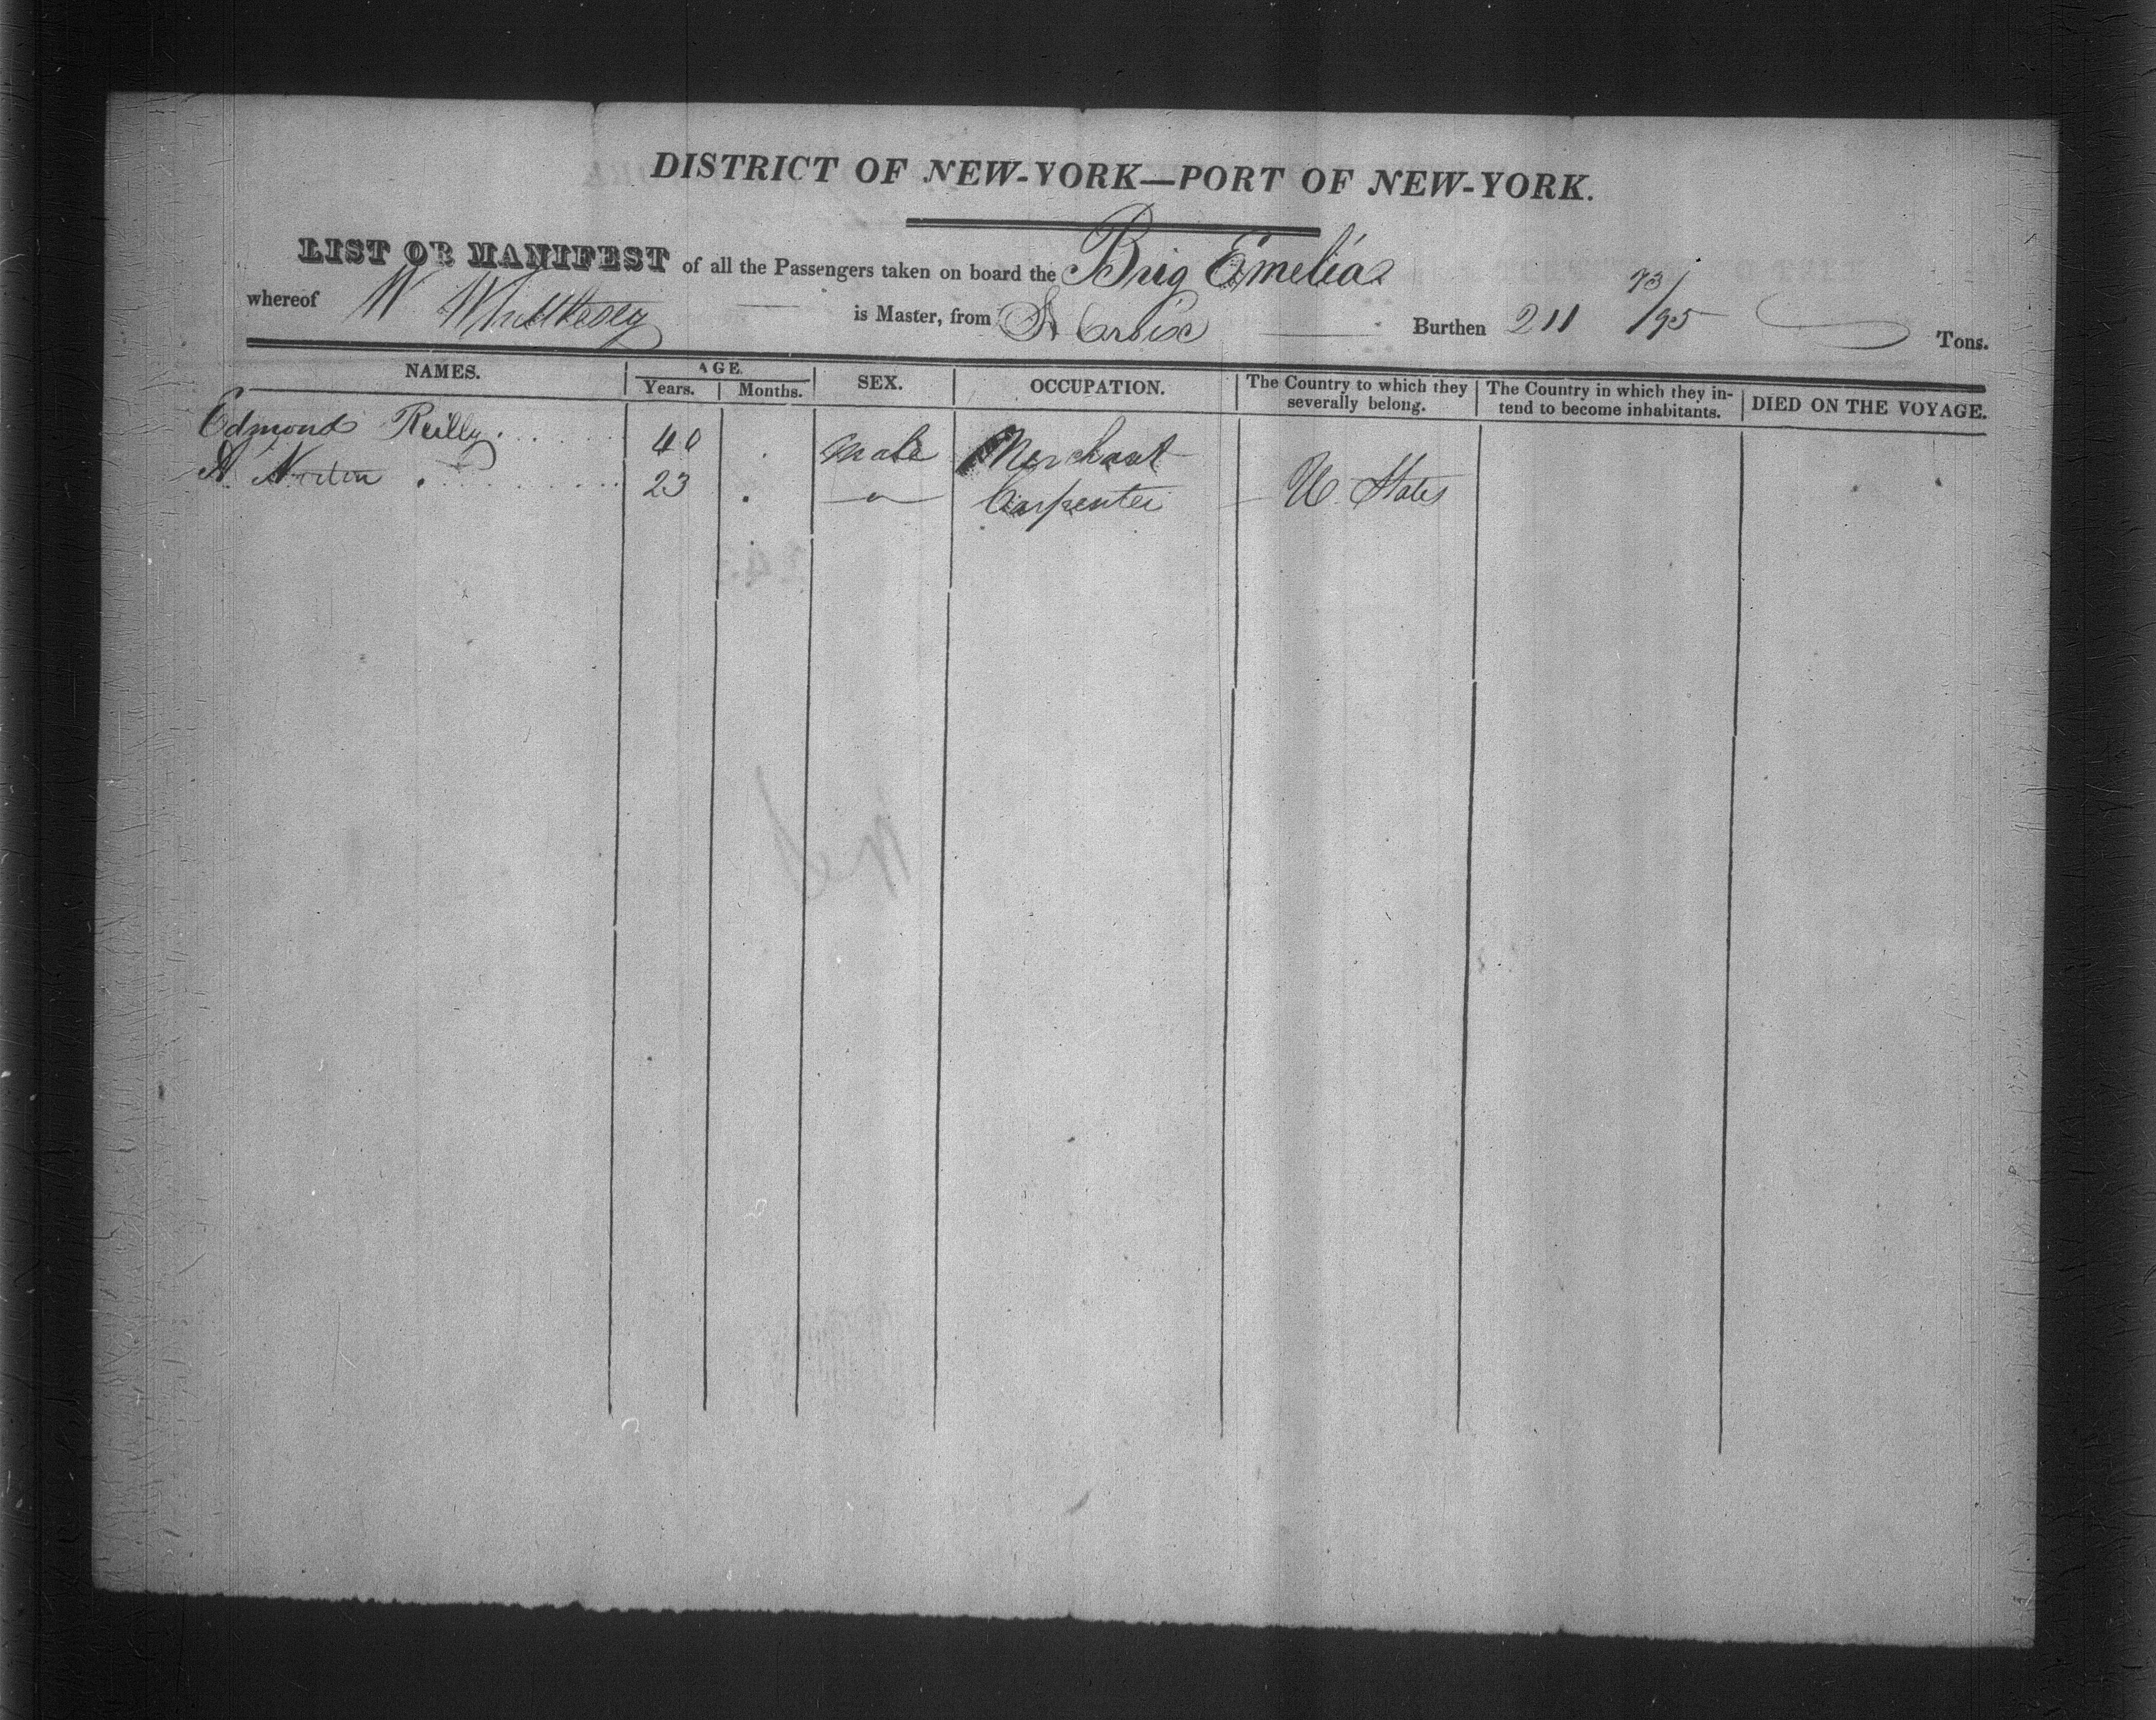 DISTRICT OF NEW-YORK—PORT OF NEW-YORK.
LIST OR MANIFEST of all the Passengers taken on board the Brig Emelia
whereof W Whittlesey is Master, from St Croix Burthen 211 93/95 Tons.
NAMES. AGE. Years. Months. SEX. OCCUPATION. The Country to which they severally belong. The Country in which they intend to become inhabitants. DIED ON THE VOYAGE.
Edmond Reilly 40 Male Merchant
A Norton 23 Carpenter U. States